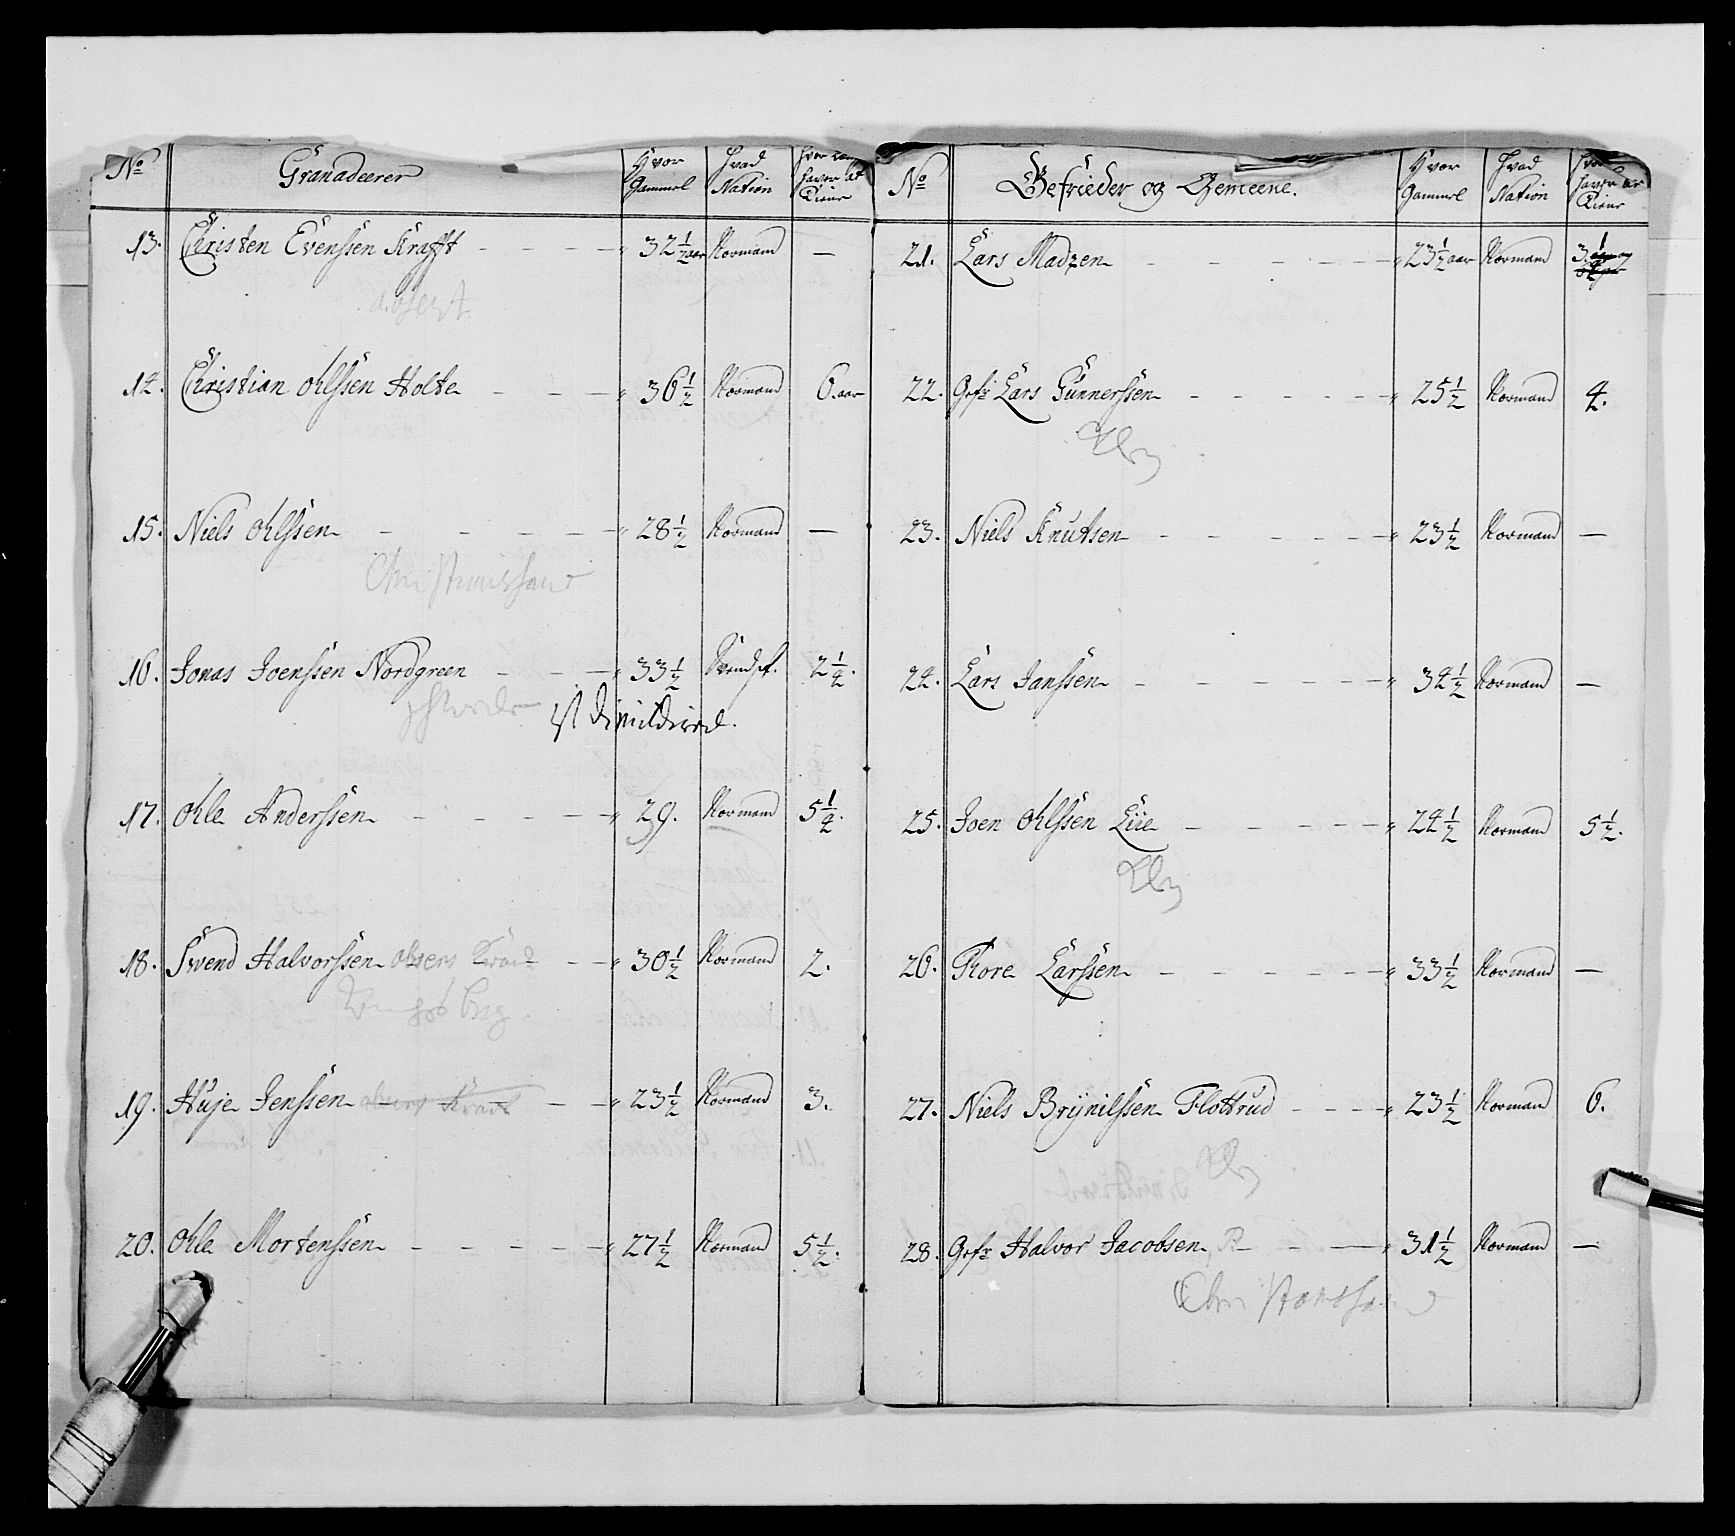 No Granadeerer Hvor Gammel Hvad Nation Hvor lang haver at Diene
13. Christen Evenssen Krafft - - - - " 32 1/2 aar Normand —
14. Christian Ohlssen Holte - - - " 36 1/2 Normand 6. aar
15. Niels Ohlssen - - - - - " 28 1/2 Normand —
Christianssand
16. Jonas Joenssen Nordgreen - - - " 33 1/2 2 1/4.
17. Ohle Anderssen - - - - - " 29. Normand 5 1/4.
18. Svend Halvorssen - - " 30 1/2 Normand 2.
19. Huje Jenssen - - " 23 1/2 Normand 3.
20. Ohle Mortenssen - - - - - " 27 1/2 Normand 5 1/2.
No Gefrieder og Gemeene. Hvor Gammel Hvad Nation Diene
21. Lars Madzen - - - - - " 23 1/2 aar Normand
22. Gefr Lars Gunnerssen - - - - - " 25 1/2 Normand 4.
23. Niels Knutsen - - - - - " 23 1/2 Normand —
24. Lars Janssen - - - - - " 34 1/2 Normand —
25. Joen Ohlssen Lüe - - - - - " 24 1/2 Normand 5 1/2.
26. Thore Larssen - - - - - " 33 1/2 Normand —
27. Niels Brÿnilssen Flottrud - - - " 23 1/2 Normand 6.
28. Gefr Halvor Jacobsen R - - - " 31 1/2 Normand —
Christianssand